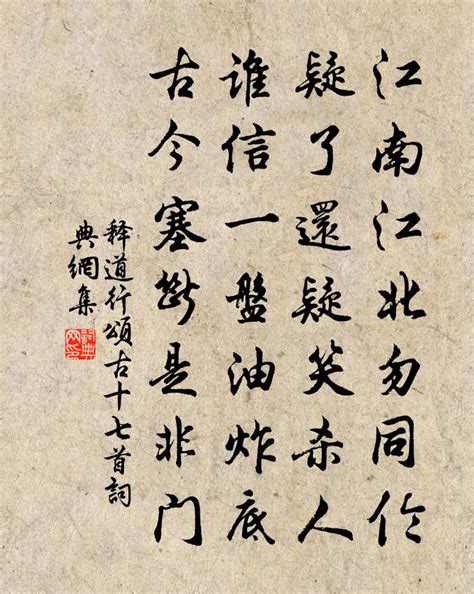 江南江北勿同伦
疑了還疑笑杀人
谁信一盤油炸底
古今塞断是非门
释道行頌古十七首詞
典網集